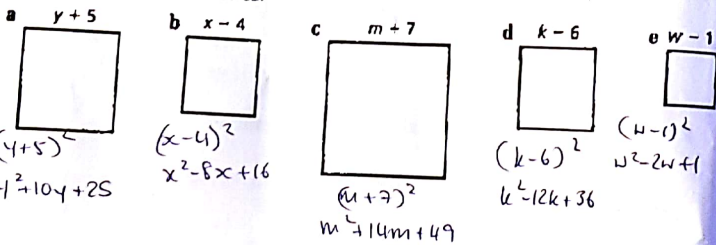 a y + 5
(y+5)²
y²+10y+25
b x - 4
(x-4)²
x²-8x+16
c m + 7
(m+7)²
m²+14m+49
d k - 6
(k-6)²
k²-12k+36
e w - 1
(w-1)²
w²-2w+1